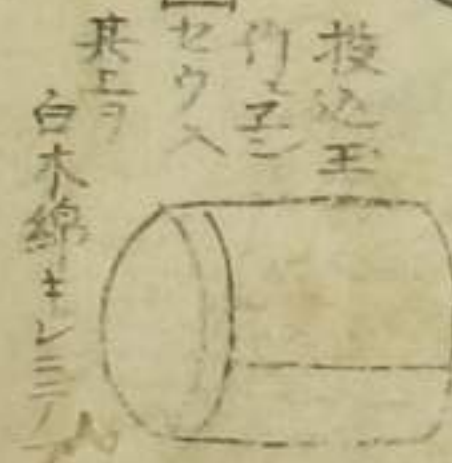 投込玉
竹ヱエン
セウ入
其上ヲ
白木綿キレニテ